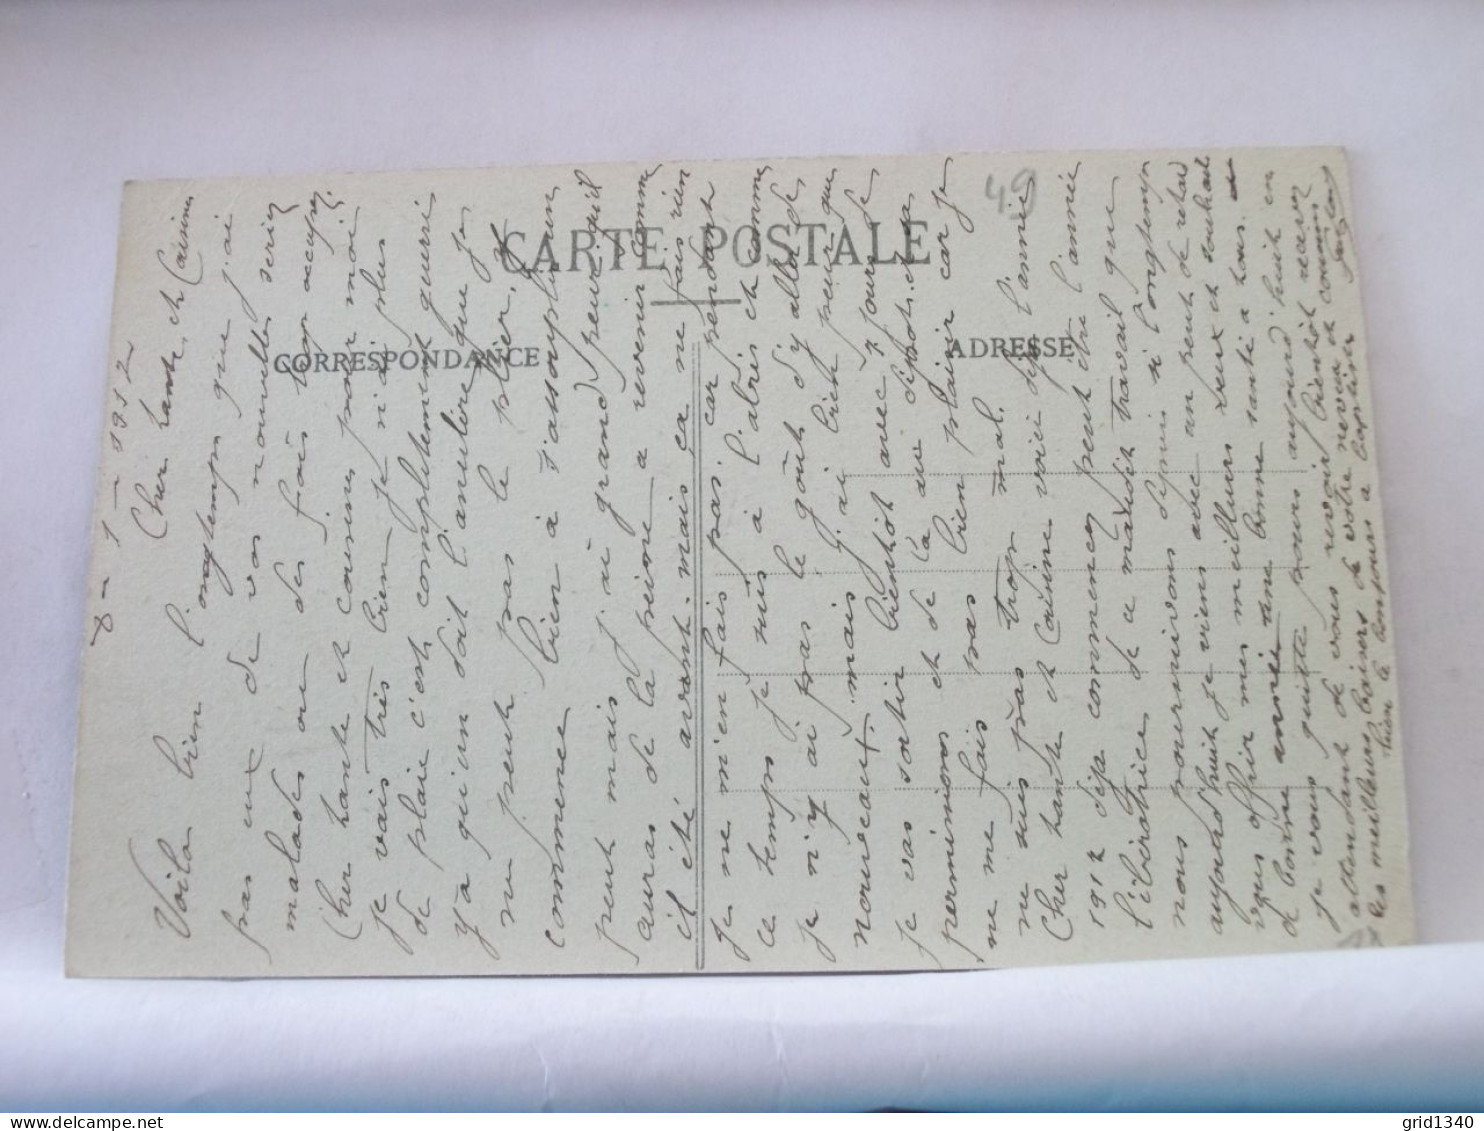 CARTE POSTALE
CORRESPONDANCE
ADRESSE
49
8 - 1 - 1912
Cher tante et Cousine
Voila bien l'ongtemps que j'ai
pas eux de vos nouvelles seriez
malades ou des fois trop occupez
Cher tante et cousine pour moi
je vais très bien je n'ai plus
de plaie c'est complètement guerri
y'a qu'un doit l'anulire que je
ne peut pas le plier, il
commence bien à s'assouplir un
peut mais j'ai grand peur qu'il
auras de la peine a revenir comme
il été avant. mais ça ne fais rien
je ne m'en fais pas. car pendant
ce temps je suis à l'abris et comme
je n'y ai pas le goût d'y aller de
nouveaux mais j'ai bien peur que
je vas sortir bientôt avec 7 jours de
permimions et de la au dépot. ce qui
ne me fais pas bien plaisir car je
ne suis pas trop mal.
Cher tante et Cousine voici déja l'année
1917 déja commencez peut être l'année
libératrice de ce maudit travail que
nous poursuivons dépuis si l'ongtemps
aujourd'huit je viens avec un peut de retard
vous offrir mes meilleurs veux et souhait
de bonne année une bonne santé a tous.
je vous quitte pour aujourd'huit en
attendant de vous revoir bientôt recevez
les meilleurs baisers de votre neveu et cousin
bien le bonjour a